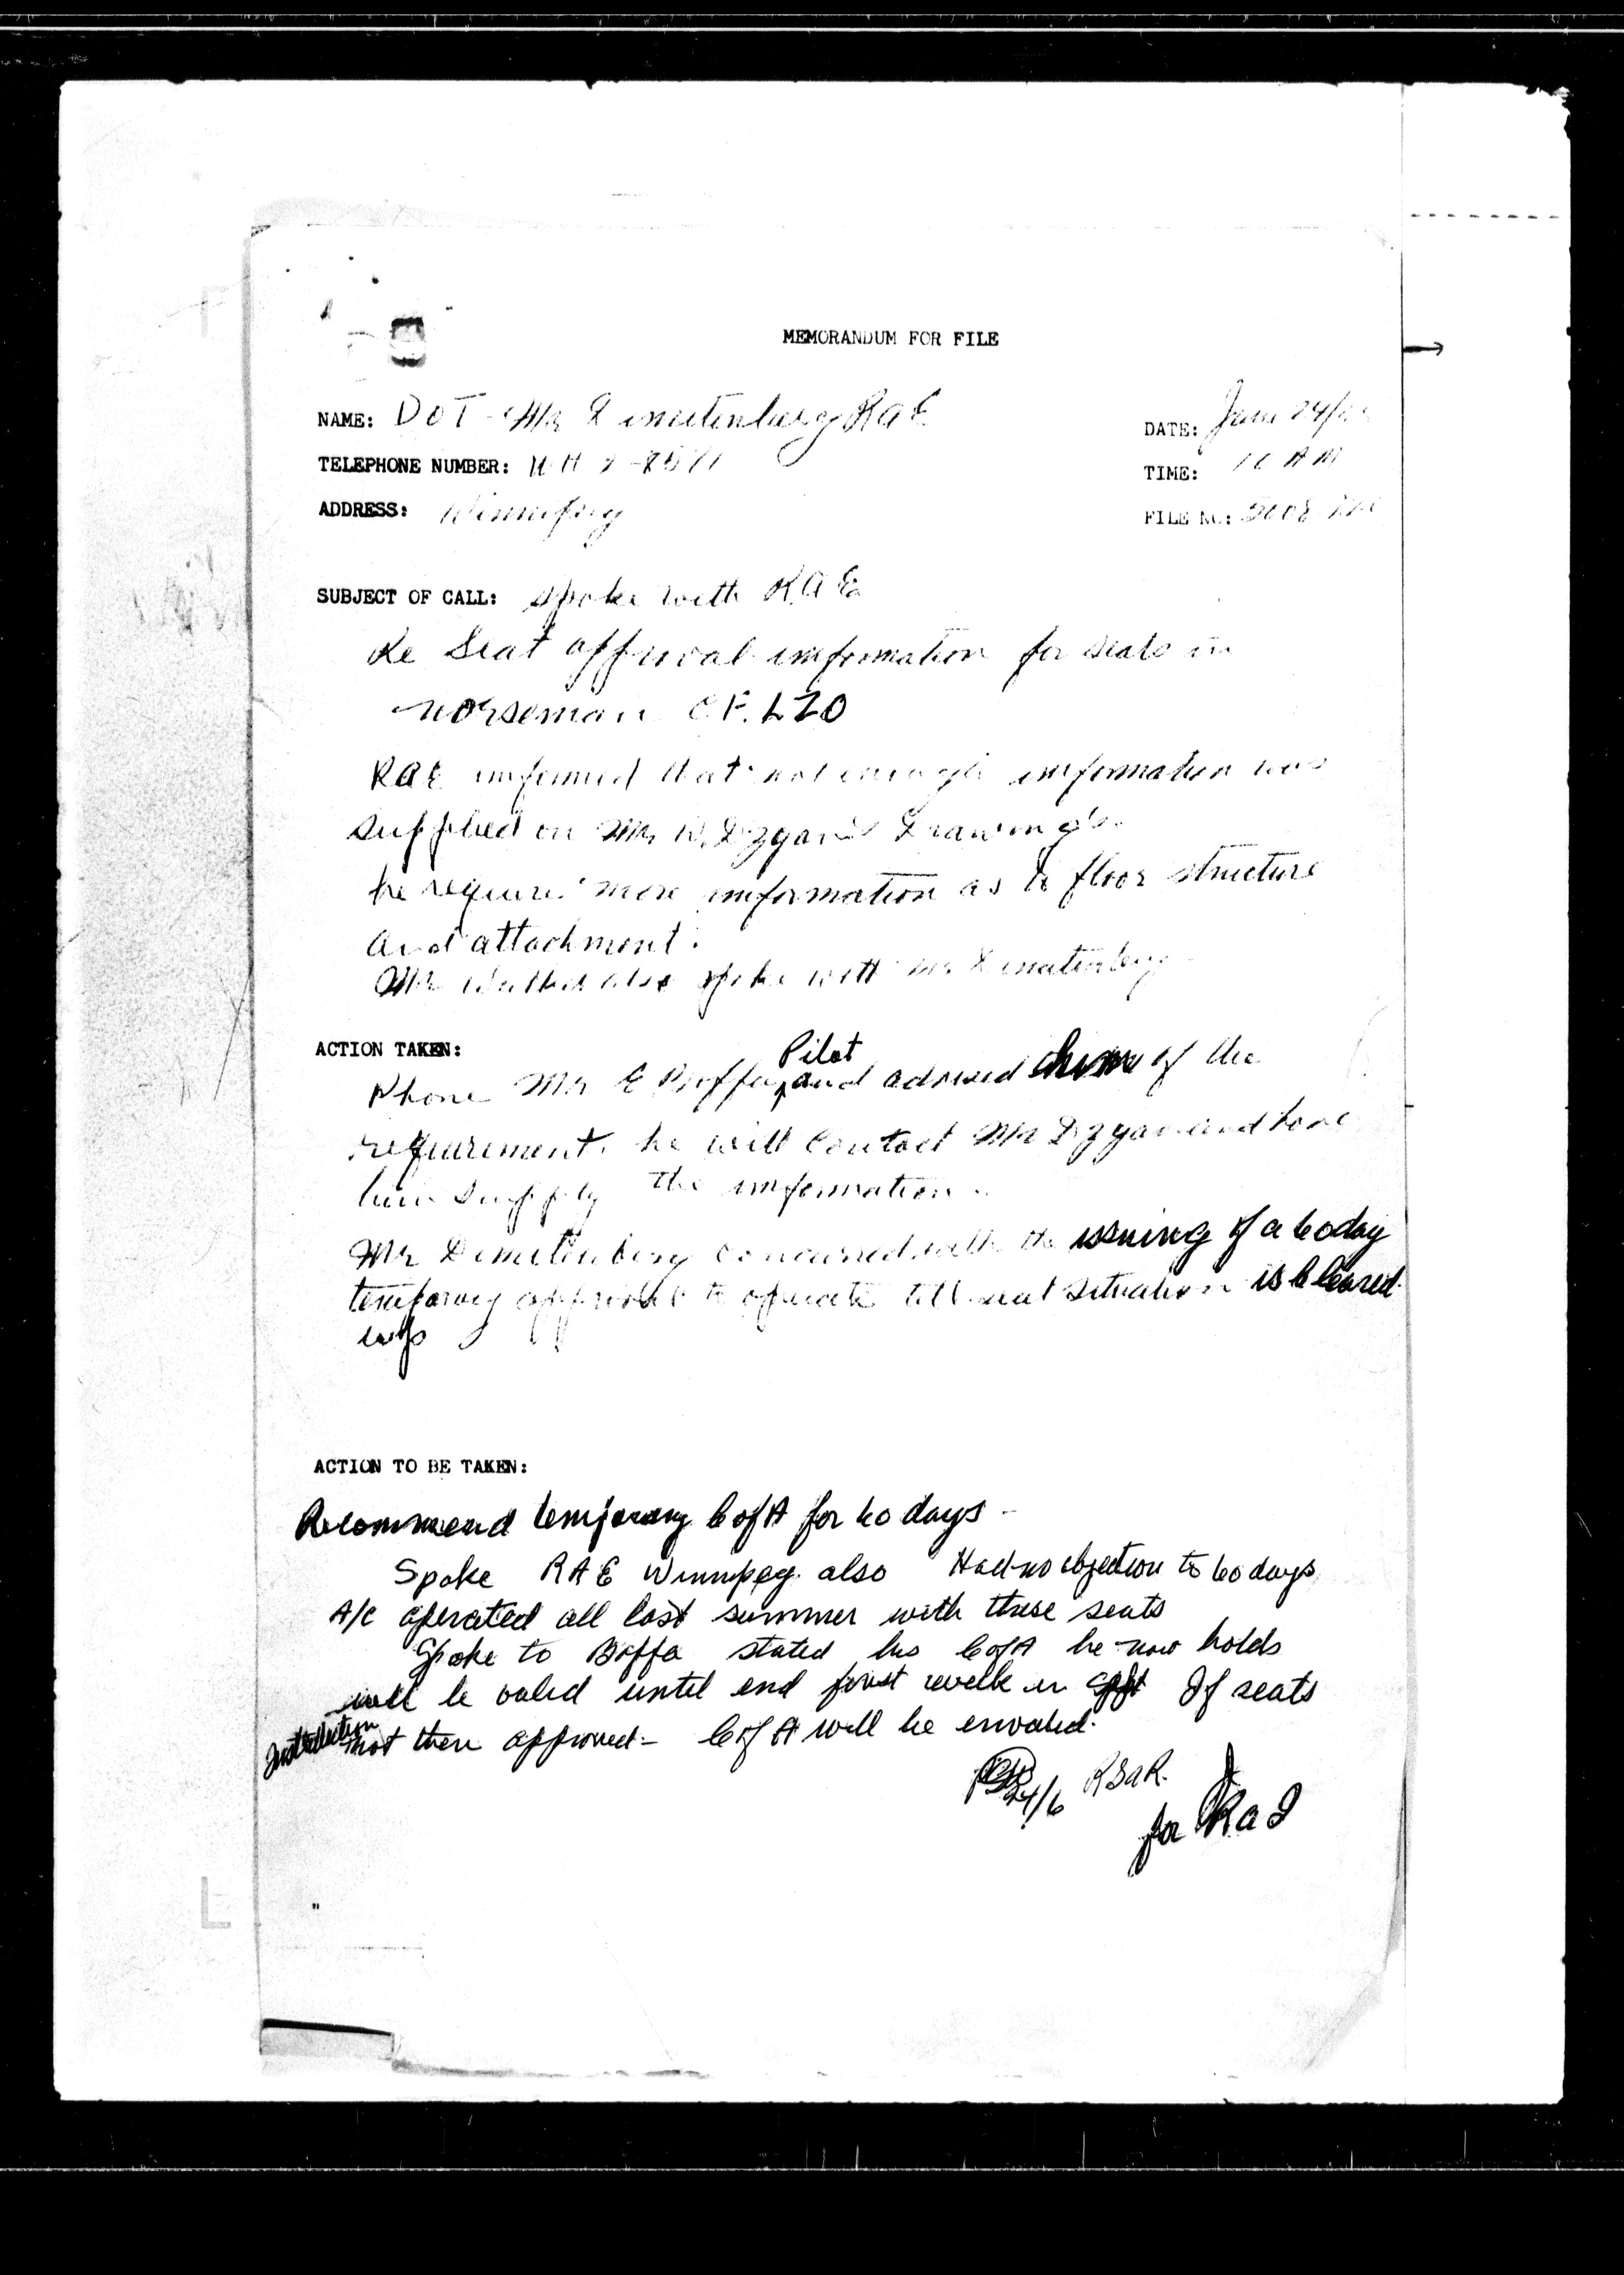 MEMORANDUM FOR FILE
NAME: DOT - Mr Dimitenberg RAE
DATE: June 24/
TELEPHONE NUMBER:
TIME: AM
ADDRESS: Winnipeg
FILE NO: 5008
SUBJECT OF CALL: Spoke with RAE
Re Seat approval imformation for seats in
Norseman CF.LZO
RAE imformed that not enough imformation was
supplied on Mr W. Dzygan's Drawing's.
he require more imformation as to floor structure
and attachment.
Mr Walker also spoke with Mr Dimitenberg
ACTION TAKEN:
Pilot
Phone Mr E Boffa, and advised him of the
requirement. he will contact Mr Dzygan and have
him supply the imformation.
Mr Dimitenberg concurred with the issuing of a 60 day
temporary approval to operate till seat situation is cleared
up
ACTION TO BE TAKEN:
Recommend temporary C of A for 60 days -
Spoke RAE Winnipeg. also Had no objection to 60 days
A/C operated all last summer with these seats
Spoke to Boffa stated his C of A he now holds
will be valid until end first week in Sept If seats
Installation not then approved - C of A will be envalid.
24/6 RSaR.
for RaI
L